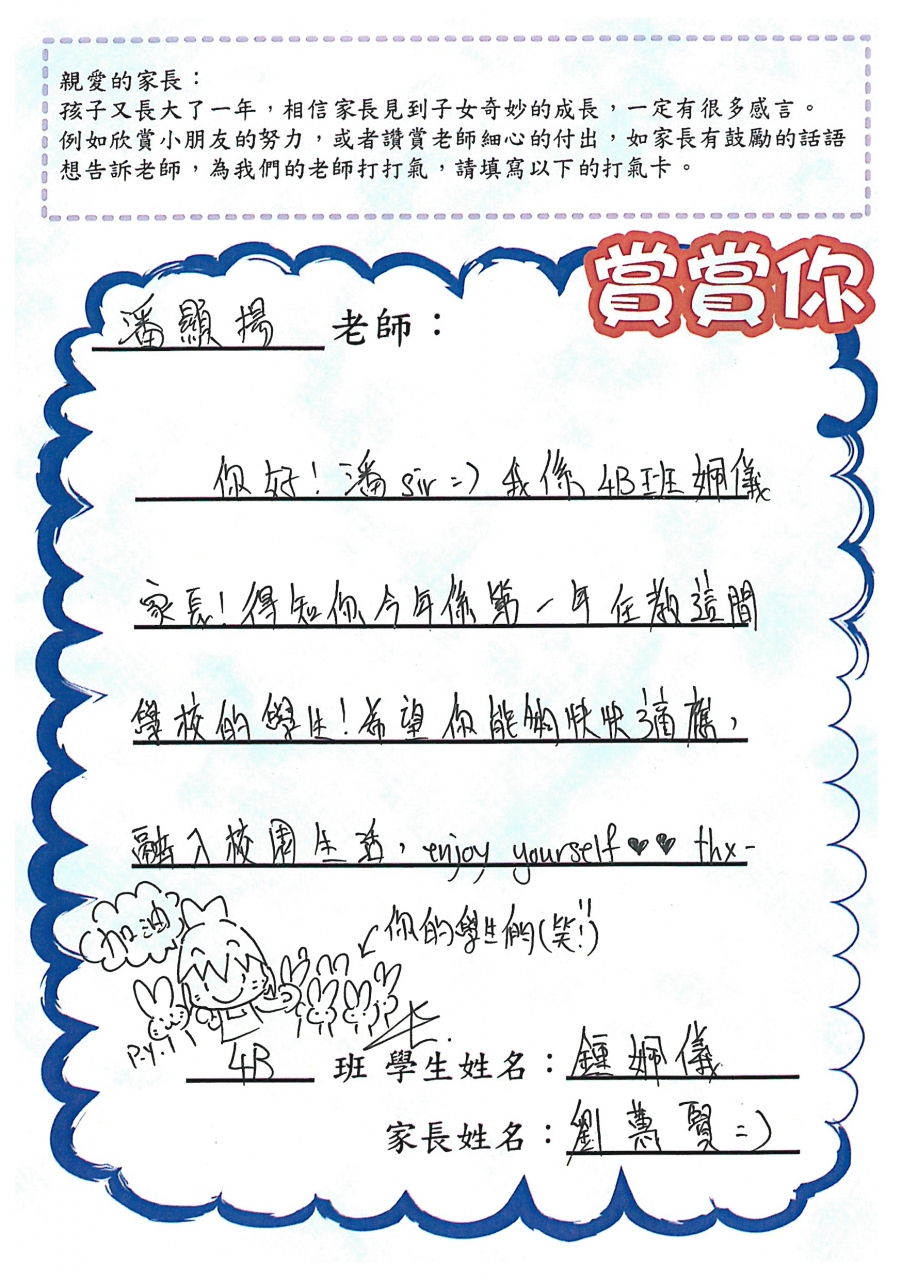 親愛的家長：
孩子又長大了一年，相信家長見到子女奇妙的成長，一定有很多感言。
例如欣賞小朋友的努力，或者讚賞老師細心的付出，如家長有鼓勵的話語
想告訴老師，為我們的老師打打氣，請填寫以下的打氣卡。
賞賞你
潘顯揚 老師：
你好！潘sir =) 我係4B班姵儀
家長！得知你今年係第一年任教這間
學校的學生！希望你能夠快快適應，
融入校園生活，enjoy yourself♥♥ thx-
加油
你的學生們(笑!!)
P.Y.
4B 班 學生姓名：鍾姵儀
家長姓名：劉蕙賢 =)